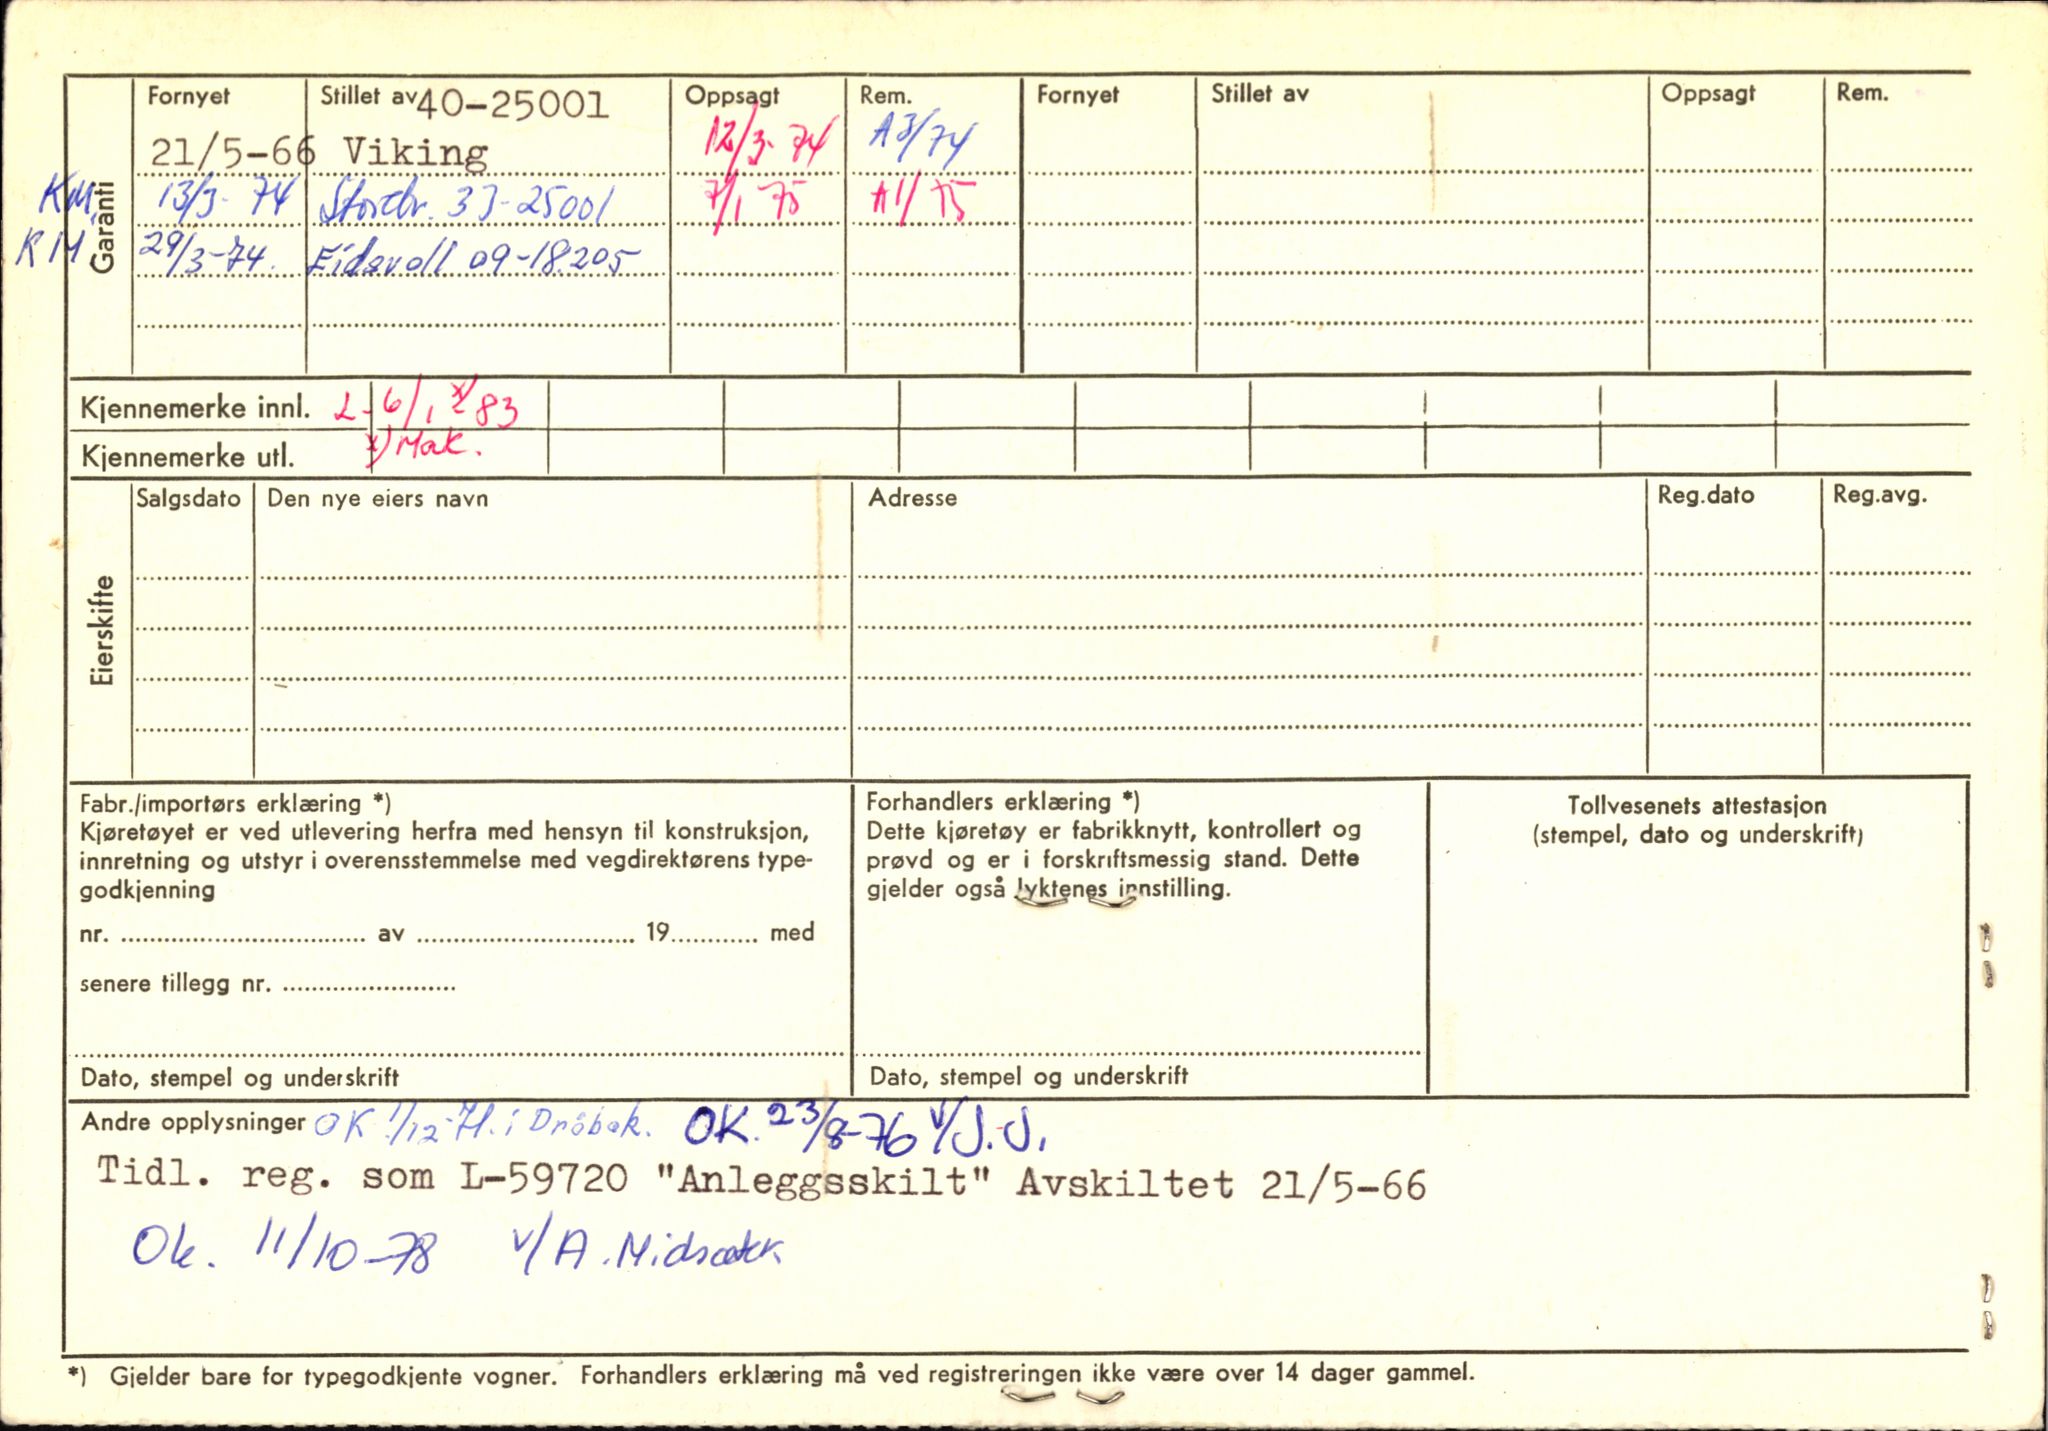 Fornyet Stillet av 40-25001 Oppsagt Rem. Fornyet Stillet av Oppsagt Rem.
21/5-66 Viking 12/3-74 A3/74
KM 13/3-74 Storebr. 33-25001 7/1 75 A1/75
KM 29/3-74. Eidsvoll 09-18205
Garanti
Kjennemerke innl. L-6/1 x) 83
Kjennemerke utl. x) Mak.
Salgsdato Den nye eiers navn Adresse Reg.dato Reg.avg.
Eierskifte
Fabr./importørs erklæring *)
Kjøretøyet er ved utlevering herfra med hensyn til konstruksjon,
innretning og utstyr i overensstemmelse med vegdirektørens type-
godkjenning
nr. .......... av .......... 19.......... med
senere tillegg nr. ..........
Dato, stempel og underskrift
Forhandlers erklæring *)
Dette kjøretøy er fabrikknytt, kontrollert og
prøvd og er i forskriftsmessig stand. Dette
gjelder også lyktenes innstilling.
Dato, stempel og underskrift
Tollvesenets attestasjon
(stempel, dato og underskrift)
Andre opplysninger OK 1/12-71. i Drøbak. OK. 23/8-76 v/J.J.
Tidl. reg. som L-59720 "Anleggsskilt" Avskiltet 21/5-66
Ok. 11/10-78 v/A.
*) Gjelder bare for typegodkjente vogner. Forhandlers erklæring må ved registreringen ikke være over 14 dager gammel.